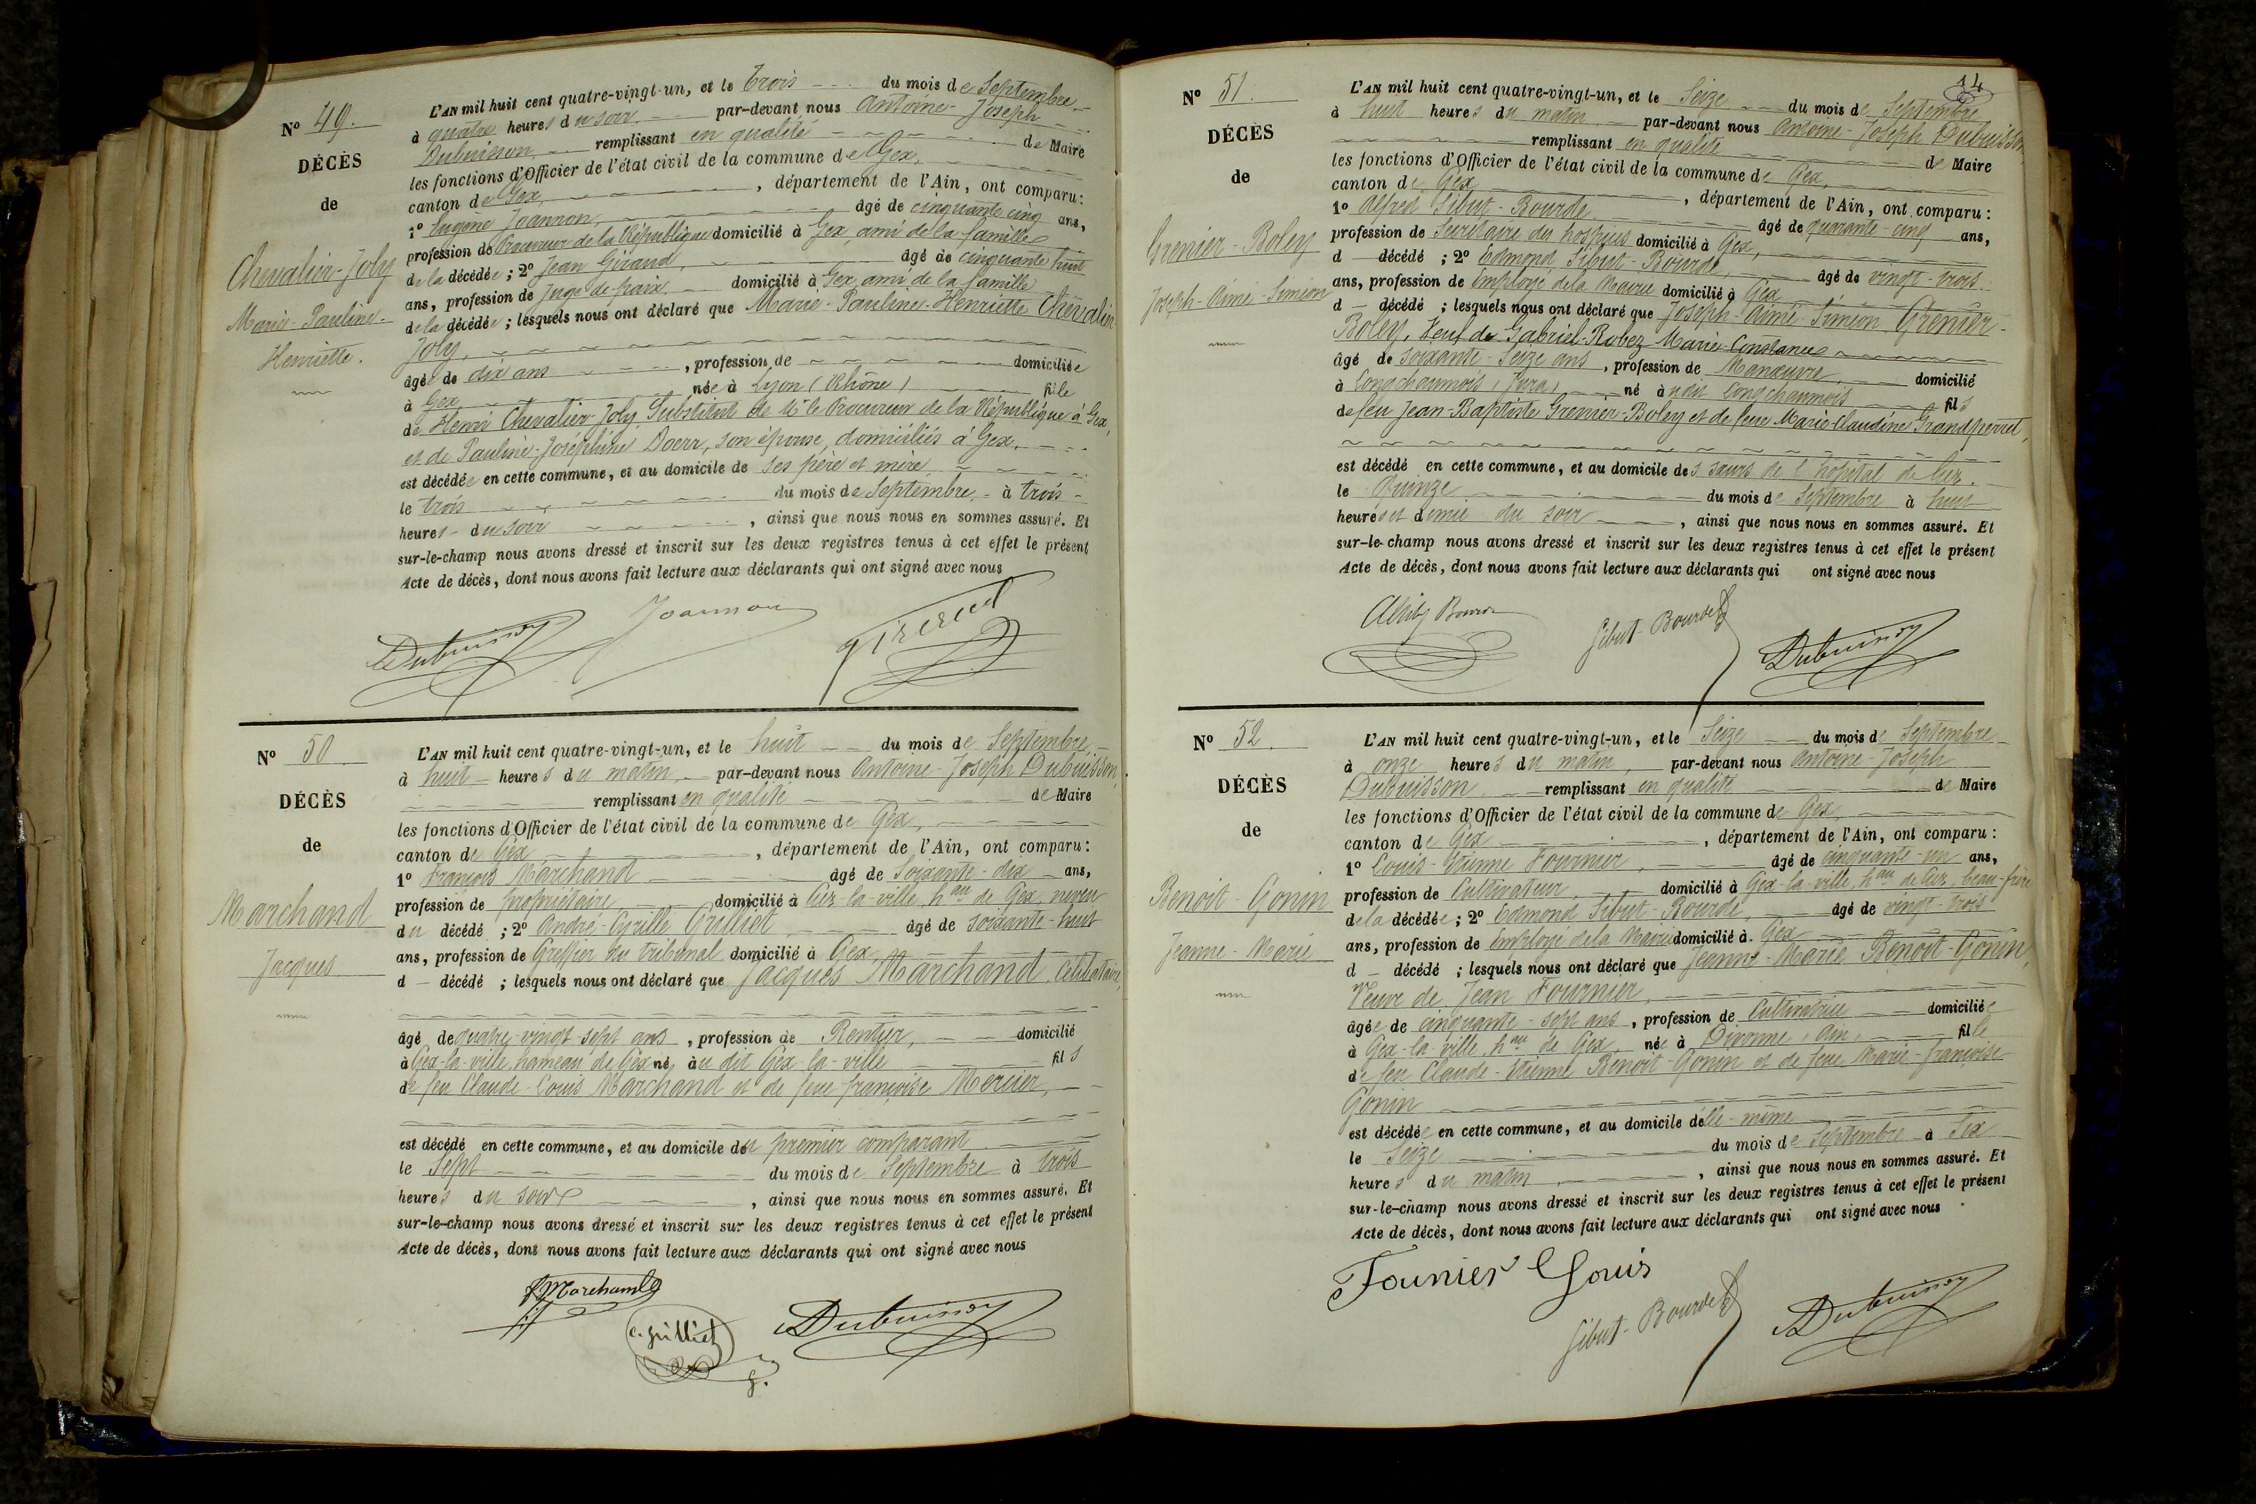 Nº 49.
DÉCÈS
de
Chevalier-Joly
Marie-Pauline-
Henriette.
L'AN mil huit cent quatre-vingt-un, et le Trois du mois de Septembre
à quatre heures du soir par-devant nous Antoine-Joseph
Dubuisson remplissant en qualité de Maire
les fonctions d'Officier de l'état civil de la commune de Gex,
canton de Gex, département de l'Ain, ont comparu:
1º Eugène Joannon, âgé de cinquante cinq ans,
profession de Procureur de la République domicilié à Gex, ami de la famille
de la décédée; 2º Jean Giraud, âgé de cinquante huit
ans, profession de Juge de paix domicilié à Gex, ami de la famille
de la décédée; lesquels nous ont déclaré que Marie-Pauline-Henriette Chevalier-
Joly,
âgée de dix ans, profession de domiciliée
à Gex née à Lyon (Rhône) fille
de Henri Chevalier-Joly, Substitut de Mr le Procureur de la République à Gex,
et de Pauline-Joséphine Doerr, son épouse, domiciliés à Gex,
est décédée en cette commune, et au domicile de ses père et mère
le trois du mois de Septembre à trois
heures du soir, ainsi que nous nous en sommes assuré. Et
sur-le-champ nous avons dressé et inscrit sur les deux registres tenus à cet effet le présent
Acte de décès, dont nous avons fait lecture aux déclarants qui ont signé avec nous
Dubuisson Joannon Giraud
Nº 50
DÉCÈS
de
Marchand
Jacques
L'AN mil huit cent quatre-vingt-un, et le huit du mois de Septembre
à huit heures du matin, par-devant nous Antoine-Joseph Dubuisson
remplissant en qualité de Maire
les fonctions d'Officier de l'état civil de la commune de Gex,
canton de Gex, département de l'Ain, ont comparu:
1º François Marchand âgé de Soixante-dix ans,
profession de propriétaire, domicilié à Gex-la-ville, hau de Gex, neveu
du décédé; 2º André-Cyrille Grilliet âgé de soixante-huit
ans, profession de Greffier du tribunal domicilié à Gex
d décédé; lesquels nous ont déclaré que Jacques Marchand, Célibataire,
âgé de quatre-vingt-sept ans, profession de Rentier, domicilié
à Gex-la-ville, hameau de Gex né, au dit Gex-la-ville fils
de feu Claude-Louis Marchand et de feue françoise Mercier,
est décédé en cette commune, et au domicile du premier comparant
le Sept du mois de Septembre à trois
heures du soir, ainsi que nous nous en sommes assuré. Et
sur-le-champ nous avons dressé et inscrit sur les deux registres tenus à cet effet le présent
Acte de décès, dont nous avons fait lecture aux déclarants qui ont signé avec nous
f Marchand
c. Grilliet Dubuisson
g.
14
Nº 51.
DÉCÈS
de
Grenier-Boley
Joseph-Aimé-Siméon
L'AN mil huit cent quatre-vingt-un, et le Seize du mois de Septembre
à huit heures du matin par-devant nous Antoine-Joseph Dubuisson
remplissant en qualité de Maire
les fonctions d'Officier de l'état civil de la commune de Gex,
canton de Gex, département de l'Ain, ont comparu:
1º Alfred Sibut-Bourde âgé de quarante-cinq ans,
profession de Secrétaire des hospices domicilié à Gex,
d décédé; 2º Edmond Sibut-Bourde, âgé de vingt-trois
ans, profession de Employé de la Mairie domicilié à Gex
d décédé; lesquels nous ont déclaré que Joseph-Aimé-Siméon Grenier-
Boley, Veuf de Gabriel-Robez Marie-Constance
âgé de soixante-seize ans, profession de Manœuvre domicilié
à Longchaumois (Jura) né au dit Longchaumois fils
de feu Jean-Baptiste Grenier-Boley et de feue Marie-Claudine Grandperret,
est décédé en cette commune, et au domicile des sœurs de l'hopital de Gex.
le Quinze du mois de Septembre à huit
heures et demie du soir, ainsi que nous nous en sommes assuré. Et
sur-le-champ nous avons dressé et inscrit sur les deux registres tenus à cet effet le présent
Acte de décès, dont nous avons fait lecture aux déclarants qui ont signé avec nous
Sibut-Bourde Dubuisson
Nº 52.
DÉCÈS
de
Benoit-Gonin
Jeanne-Marie
L'AN mil huit cent quatre-vingt-un, et le Seize du mois de Septembre
à onze heures du matin, par-devant nous Antoine-Joseph
Dubuisson remplissant en qualité de Maire
les fonctions d'Officier de l'état civil de la commune de Gex
canton de Gex, département de l'Ain, ont comparu:
1º Louis-Etienne Fournier, âgé de cinquante-un ans,
profession de Cultivateur domicilié à Gex-la-ville, hau de Gex, beau-frère
de la décédée; 2º Edmond Sibut-Bourde, âgé de vingt-trois
ans, profession de Employé de la Mairie domicilié à Gex
d décédé; lesquels nous ont déclaré que Jeanne-Marie Benoit-Gonin,
Veuve de Jean Fournier,
âgée de cinquante-sept ans, profession de Cultivatrice domiciliée
à Gex-la-ville, hau de Gex née à Divonne, Ain, fille
de feu Claude-Etienne Benoit-Gonin et de feue Marie-françoise
Gonin
est décédée en cette commune, et au domicile d'elle-même
le Seize du mois de Septembre à Six
heures du matin, ainsi que nous nous en sommes assuré. Et
sur-le-champ nous avons dressé et inscrit sur les deux registres tenus à cet effet le présent
Acte de décès, dont nous avons fait lecture aux déclarants qui ont signé avec nous
Founier Louis
Sibut-Bourde Dubuisson